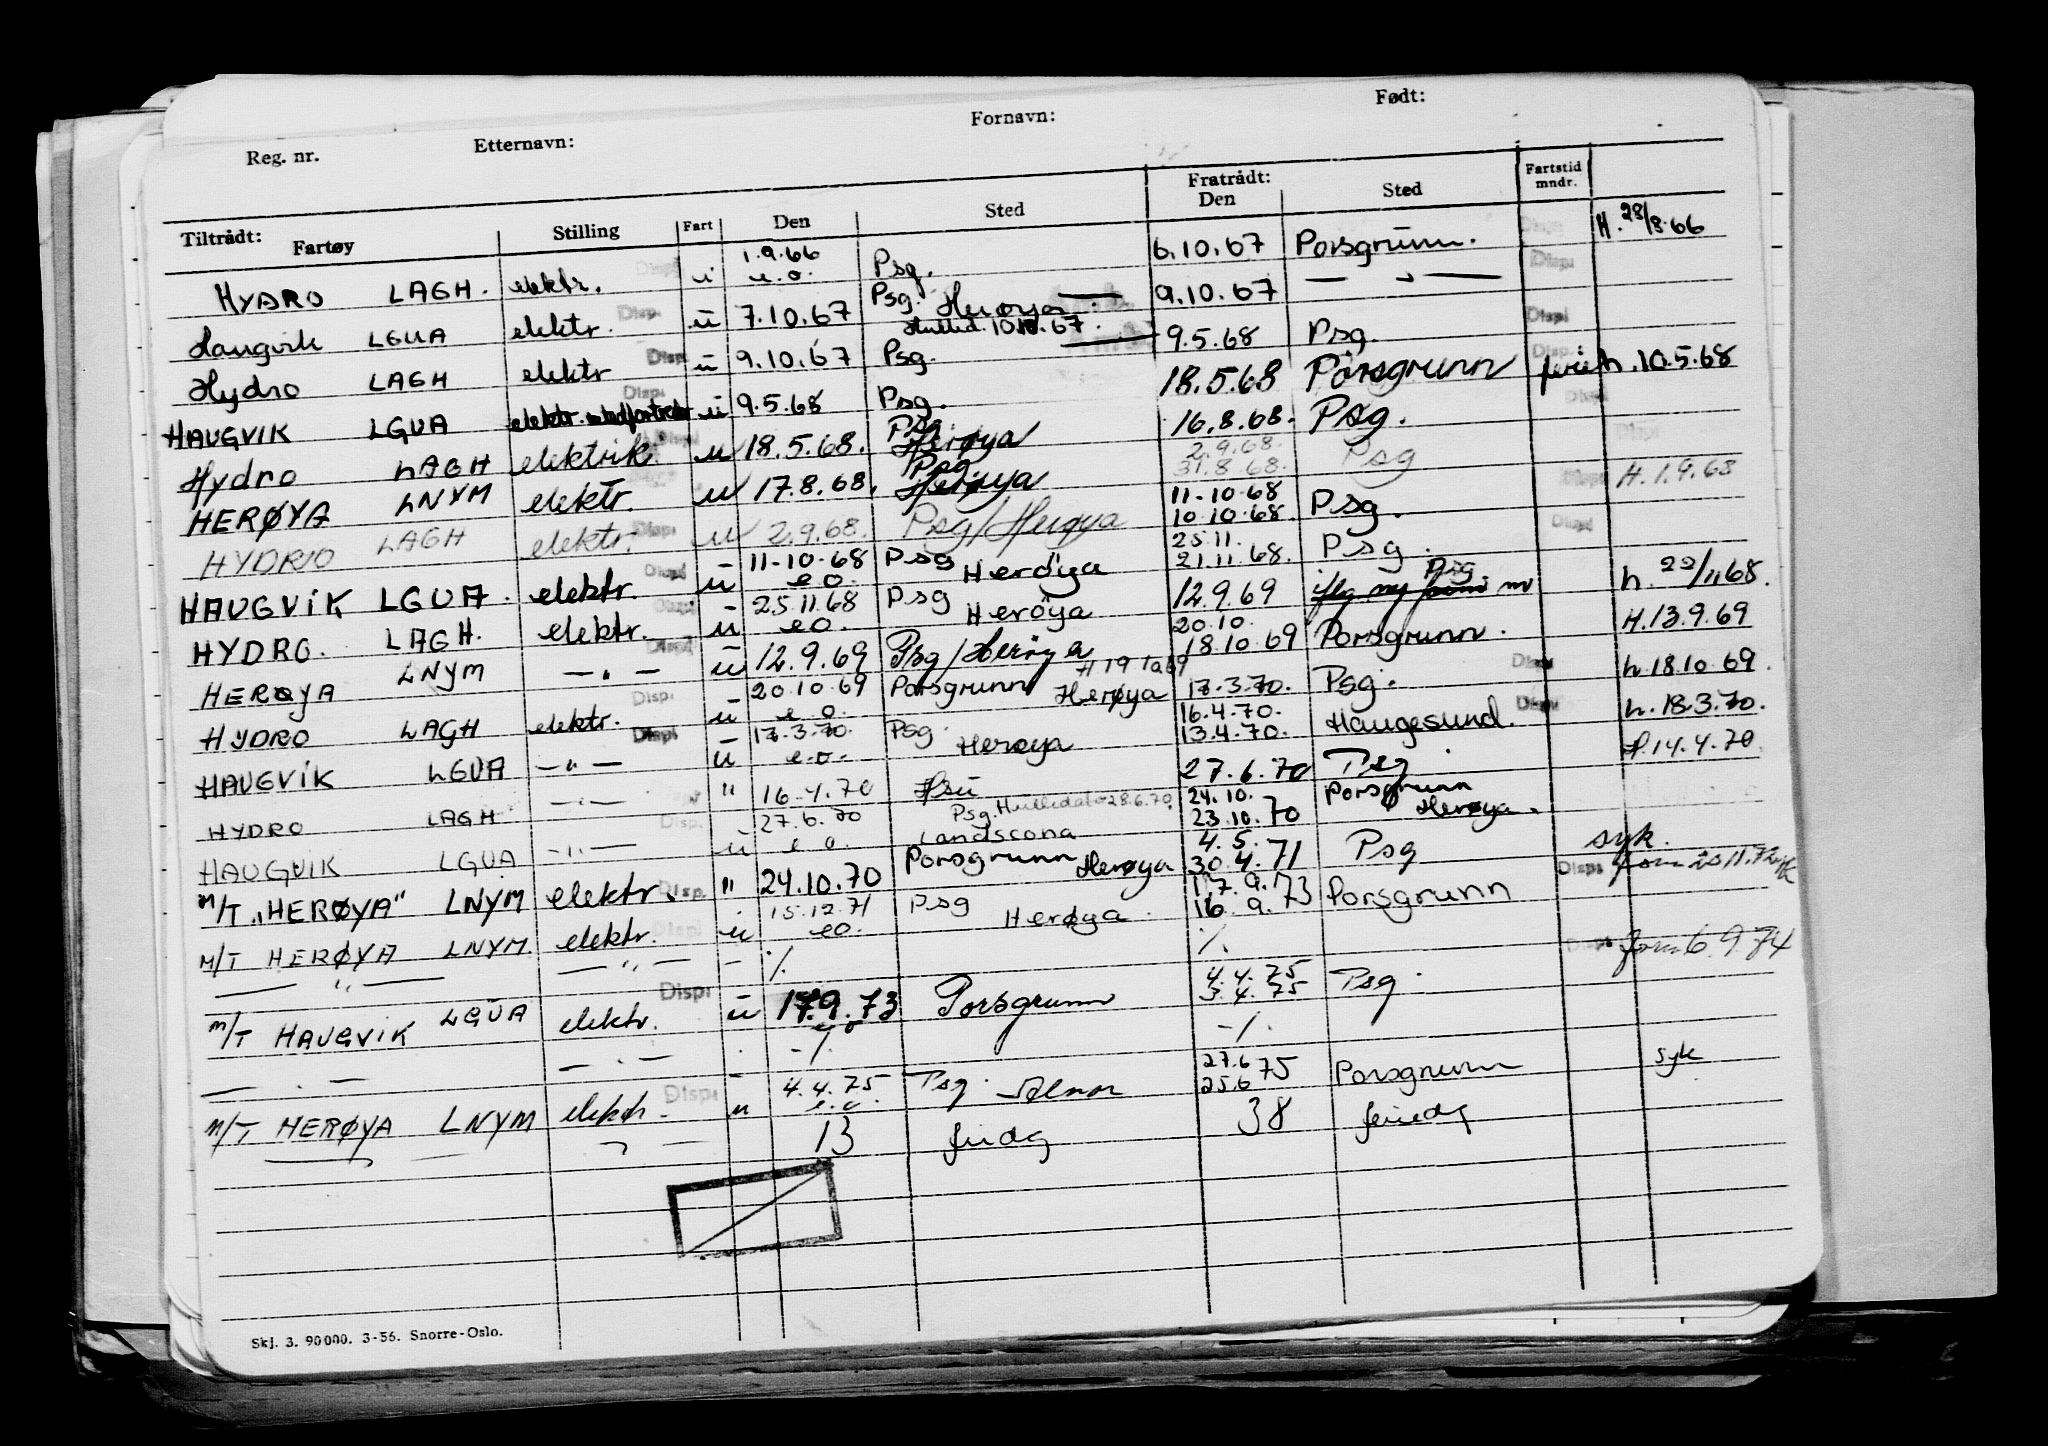 Reg. nr. Etternavn: Fornavn: Født:
Tiltrådt: Fartøy Stilling Fart Den Sted Fratrådt: Den Sted Fartstid mndr.
HYDRO LAGH. elektr. Disp. u 1.9.66 e.o. Psg. 6.10.67 Porsgrunn. Disp. H. 28/8.66
Haugvik LGUA elektr. Disp. u 7.10.67 Psg. Herøya 9.10.67 — " — Disp.
Hydro LAGH elektr Disp. u 9.10.67 Psg. Hullid. 10.10.67. 9.5.68 Psg. Disp.
HAUGVIK LGUA elektr. Disp. u 9.5.68 Psg. 18.5.68 Porsgrunn Disp. h. 10.5.68
Hydro LAGH elektrik. Disp. u 18.5.68. Psg. Herøya 16.8.68. Psg. Disp.
HERØYA LNYM elektr. u 17.8.68. Psg. Herøya 2.9.68. 31.8.68. Psg Disp. H. 1.9.68
HYDRO LAGH elektr. Disp. u 2.9.68. Psg/Herøya 11-10-68 10.10.68. Psg. Disp.
HAUGVIK LGUA. elektr. Disp. u 11-10-68 e.o. Psg Herøya 25.11. 21.11.68. Psg.
HYDRO. LAGH. elektr. Disp. u 25.11.68 e.o. Psg Herøya 12.9.69 Psg h. 22/11 68.
HERØYA LNYM — " — Disp. u 12.9.69 Psg/Herøya 20.10. 18.10.69 Porsgrunn. H. 13.9.69
HYDRO LAGH elektr. Disp. u 20.10.69 e.o. Porsgrunn Herøya H 19 10 69 17.3.70. Psg. Disp. h. 18.10.69.
HAUGVIK LGUA — " — Disp. u 17.3.70. e.o. Psg. Herøya 16.4.70. 13.4.70. Haugesund. Disp. h. 18.3.70.
HYDRO LAGH — " — " 16.4.70 Hsu 27.6.70 Psg H. 14.4.70
HAUGVIK LGUA — " — Disp. u 27.6.70 e.o. Psg. Hullid. 28.6.70. Landscona 24.10. 23.10.70 Porsgrunn Herøya.
M/T „HERØYA" LNYM elektr. Disp. " 24.10.70 Porsgrunn Herøya 4.5. 30.4.71 Psg syk.
M/T HERØYA LNYM. elektr. Disp. u 15.12.71 e.o. Psg Herøya. 17.9.73 16.9. Porsgrunn Disp.
— " — — " — - ./. ./. Disp. form 6.9.74
M/T HAUGVIK LGUA elektr. Disp. u 17.9.73 e.o Porsgrunn 4.4.75 3.4.75 Psg.
— " — — " — - -/. -/.
M/T HERØYA LNYM elektr. Disp. u 4.4.75 e.o. Psg. 27.6 25.6 75 Porsgrunn syk
13 feriedg 38 feriedg
Skj. 3. 90 000. 3-56. Snorre-Oslo.